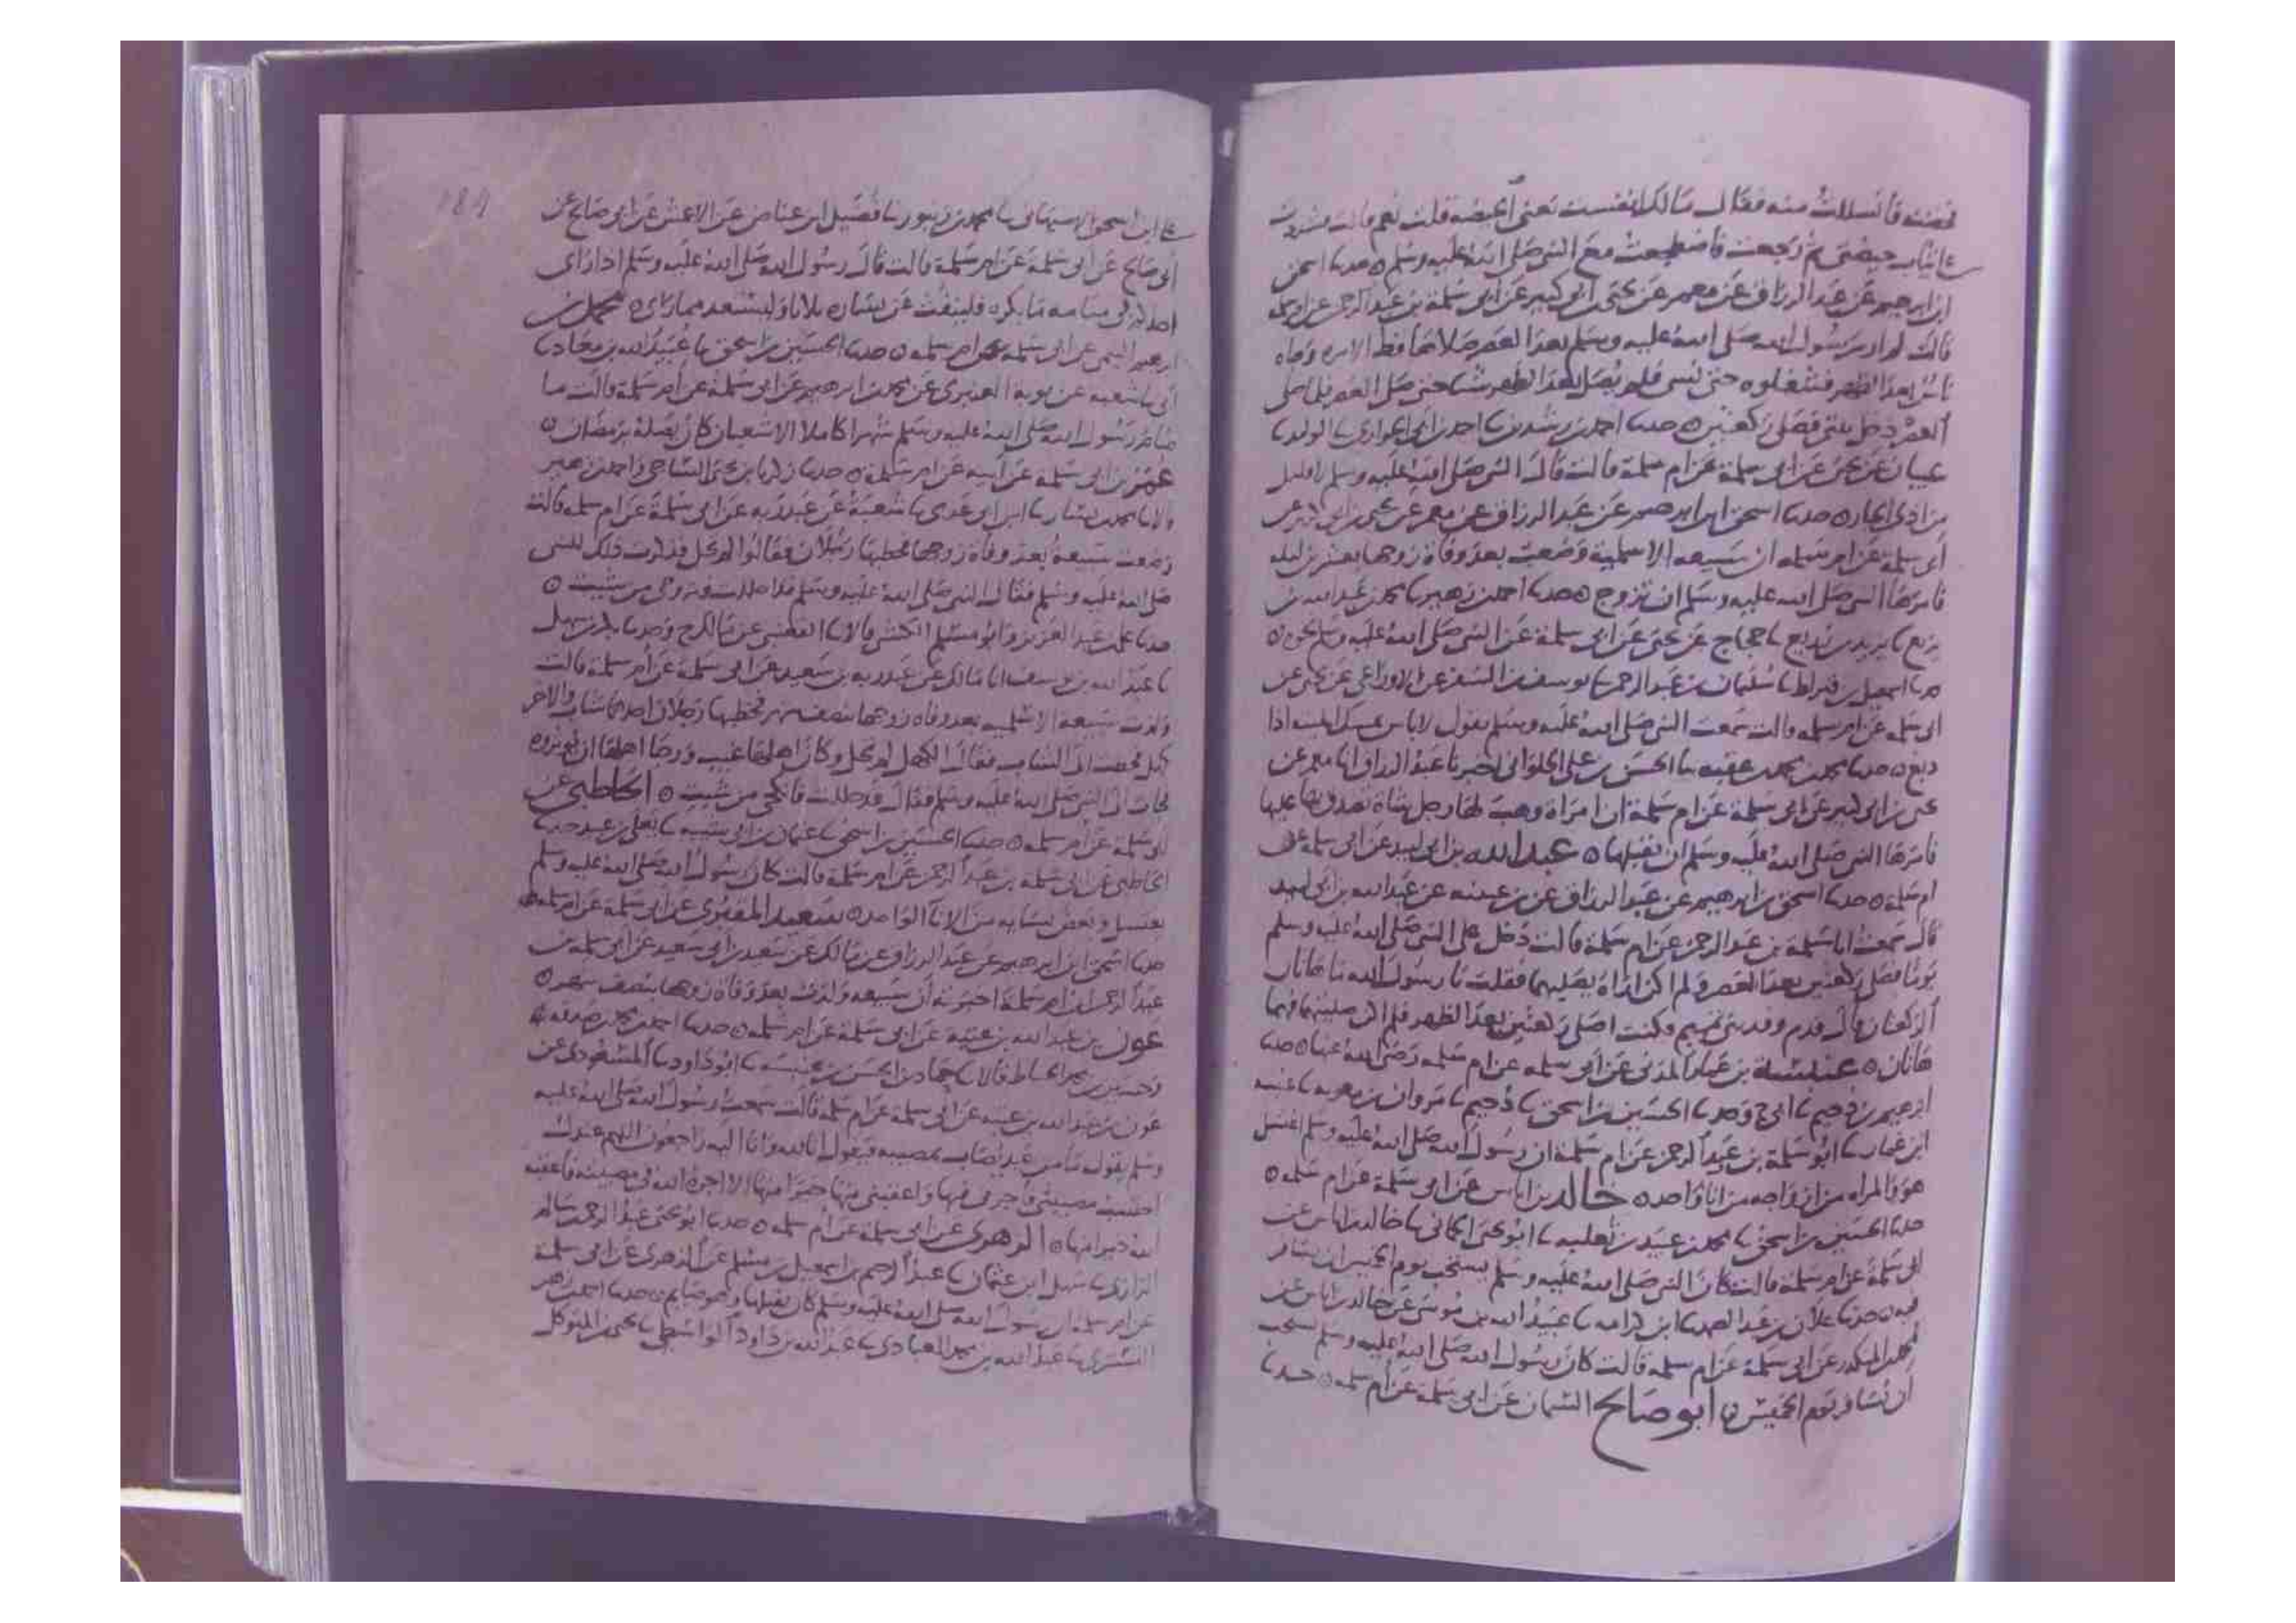 فانسللت منه فقال مالك انفست تعني الحيضة قلت نعم قالت فشددت
علي ثياب حيضتي ثم رجعت فاضطجعت مع النبي صلى الله عليه وسلم ه حدثنا اسحق
ابن ابرهيم عن عبد الرزاق عن معمر عن يحيى بن ابي كثير عن ابي سلمة بن عبد الرحمن عن ام سلمة
قالت لم ار رسول الله صلى الله عليه وسلم بعد العصر صلاها قط الا مرة
ناس بعد الظهر فشغلوه حتى فلم يصل بعد الظهر شيا حتى صلى العصر فلما صلى
العصر دخل بيتي فصلى ركعتين ه حدثنا احمد بن رشدين نا احمد بن ابي الحواري نا الوليد نا
شيبان عن يحيى عن ابي سلمة عن ام سلمة قالت قال النبي صلى الله عليه وسلم
حدثنا اسحق ابن ابرهيم عن عبد الرزاق عن معمر عن يحيى بن ابي كثير عن
ابي سلمة عن ام سلمة ان سبيعه الاسلمية وضعت بعد وفاة زوجها بعشرين ليله
فامرها النبي صلى الله عليه وسلم ان تزوج ه حدثنا احمد بن زهير نا محمد بن عبد الله بن
بزيع نا يزيد بن زريع نا حجاج عن يحيى عن ابي سلمة عن النبي صلى الله عليه وسلم نحوه ه
حدثنا اسمعيل بن قيراط نا سليمان بن عبد الرحمن نا يوسف بن السفر عن الاوزاعي عن يحيى عن
ابي سلمه عن ام سلمه قالت سمعت النبي صلى الله عليه وسلم يقول لا باس بمسك الميته اذا
دبغ ه حدثنا محمد بن محمد بن عقبه نا الحسن بن علي الحلواني نا عبد الرزاق انا معمر عن
يحيى بن ابي كثير عن ابي سلمة عن ام سلمة ان امراة وهبت لها رجل شاة تصدق بها عليها
فامرها النبي صلى الله عليه وسلم ان تقبلها ه عبد الله بن ابي لبيد عن ابي سلمة عن
ام سلمة ه حدثنا اسحق بن ابرهيم عن عبد الرزاق عن بن عيينه عن عبد الله بن ابي لبيد
قال سمعت ابا سلمة بن عبد الرحمن عن ام سلمة قالت دخل علي النبي صلى الله عليه وسلم
يوما فصلى ركعتين بعد العصر ولم اكن اراه يصليهما فقلت يا رسول الله ما هاتان
الركعتان قال قدم وفد بني تميم وكنت اصلي ركعتين بعد الظهر فلم اكن صليتهما فهما
هاتان ه عنبسة بن عمار المدني عن ابي سلمه عن ام سلمه رضي الله عنها ه حدثنا
ابرهيم بن دحيم نا ابي ح وحدثنا الحسين بن اسحق نا دحيم نا مروان بن معويه نا عنبسه
ابن عمار نا ابو سلمة بن عبد الرحمن عن ام سلمة ان رسول الله صلى الله عليه وسلم اغتسل
هو والمراه من ازواجه من انا واحد ه خالد بن اياس عن ابي سلمة عن ام سلمه ه
حدثنا الحسين بن اسحق نا محمد بن عبيد بن ثعلبه نا ابو يحيى الحماني نا خالد بن اياس عن
ابي سلمة عن ام سلمة قالت كان النبي صلى الله عليه وسلم يستحب يوم الخميس ان يسافر
فيه ه حدثنا علان بن عبد الصمد نا ابن كرامه نا عبيد الله بن موسى عن خالد بن اياس عن
محمد بن المنكدر عن ابي سلمة عن ام سلمه قالت كان رسول الله صلى الله عليه وسلم يستحب
ان يسافر يوم الخميس ه ابو صالح السمان عن ابي سلمة عن ام سلمه ه حدثنا
184
علي ابن اسحق الاصبهاني نا محمد بن زنبور نا فضيل ابن عياض عن الاعمش عن ابي صالح عن
ابي صالح عن ابي سلمة عن ام سلمة قالت قال رسول الله صلى الله عليه وسلم اذا راى
احدكم في منامه ما يكره فلينفث عن يساره ثلاثا وليستعذ مما راى ه محمد بن
ابرهيم التيمي عن ابي سلمة عن ام سلمه ه حدثنا الحسين بن اسحق نا عبيد الله بن معاذ نا
ابي نا شعبه عن توبة العنبري عن محمد بن ابرهيم عن ابي سلمة عن ام سلمة قالت ما
صام رسول الله صلى الله عليه وسلم شهرا كاملا الا شعبان كان يصله برمضان ه
عمر بن ابي سلمة عن ابيه عن ام سلمة ه حدثنا زكريا بن يحيى الساجي واحمد بن زهير
قالا نا محمد بن بشار نا ابن ابي عدي نا شعبة عن عبد ربه عن ابي سلمة عن ام سلمه قالت
وضعت سبيعة بعد وفاة زوجها فخطبها رجلان فقالوا لم تحل فذكرت ذلك للنبي
صلى الله عليه وسلم فقال النبي صلى الله عليه وسلم قد حللت فتزوجي من شيت ه
حدثنا علي بن عبد العزيز وابو مسلم الكشي قالا نا القعنبي عن مالك ح وحدثنا بكر بن سهل
نا عبد الله بن يوسف انا مالك عن عبد ربه بن سعيد عن ابي سلمة عن ام سلمة قالت
ولدت سبيعه الاسلميه بعد وفاه زوجها بنصف شهر فخطبها رجلان احدهما شاب والاخر
كهل فحطت الى الشاب فقال الكهل لم تحل وكان اهلها غيب ورجا اهلها ان يوثروه
فجات الى النبي صلى الله عليه وسلم فقال قد حللت فانكحي من شيت ه الحاطبي عن
ابي سلمة عن ام سلمه ه حدثنا الحسين بن اسحق نا عثمان بن ابي شيبه نا يعلى بن عبيد حدثنا
الحاطبي عن ابي سلمة بن عبد الرحمن عن ام سلمة قالت كان رسول الله صلى الله عليه وسلم
يغتسل وبعض نسايه من الانا الواحد ه سعيد المقبري عن ابي سلمة عن ام سلمه
حدثنا اسحق ابن ابرهيم عن عبد الرزاق عن مالك عن سعيد بن ابي سعيد عن ابي سلمه بن
عبد الرحمن ان ام سلمة اخبرته ان سبيعه ولدت بعد وفاة زوجها بنصف شهر ه
عون بن عبد الله بن عتبة عن ابي سلمة عن ام سلمه ه حدثنا احمد بن محمد بن صدقه
قالا نا حماد بن الحسن بن عنبسه نا ابو داود نا المسعودي عن
عون بن عبد الله بن عتبه عن ابي سلمة عن ام سلمه قالت سمعت رسول الله صلى الله عليه
وسلم يقول ما من عبد اصاب بمصيبه فيقول انا لله وانا اليه راجعون اللهم عندك
احتسب مصيبتي فاجرني فيها واعقبني منها خيرا منها الا اجره الله في مصيبته فاعقبه
الله خيرا منها ه الزهري عن ابي سلمة عن ام سلمه ه حدثنا ابو يحيى عبد الرحمن بن سالم
الرازي نا سهل ابن عثمان نا عبد الرحيم بن اسمعيل بن مسلم عن الزهري عن ابي سلمة
عن ام سلمة ان رسول الله صلى الله عليه وسلم كان يقبلها وهو صايم ه حدثنا احمد بن زهير
التستري نا عبد الله بن محمد العبادي نا عبد الله بن داود الواسطي نا يحيى بن المتوكل